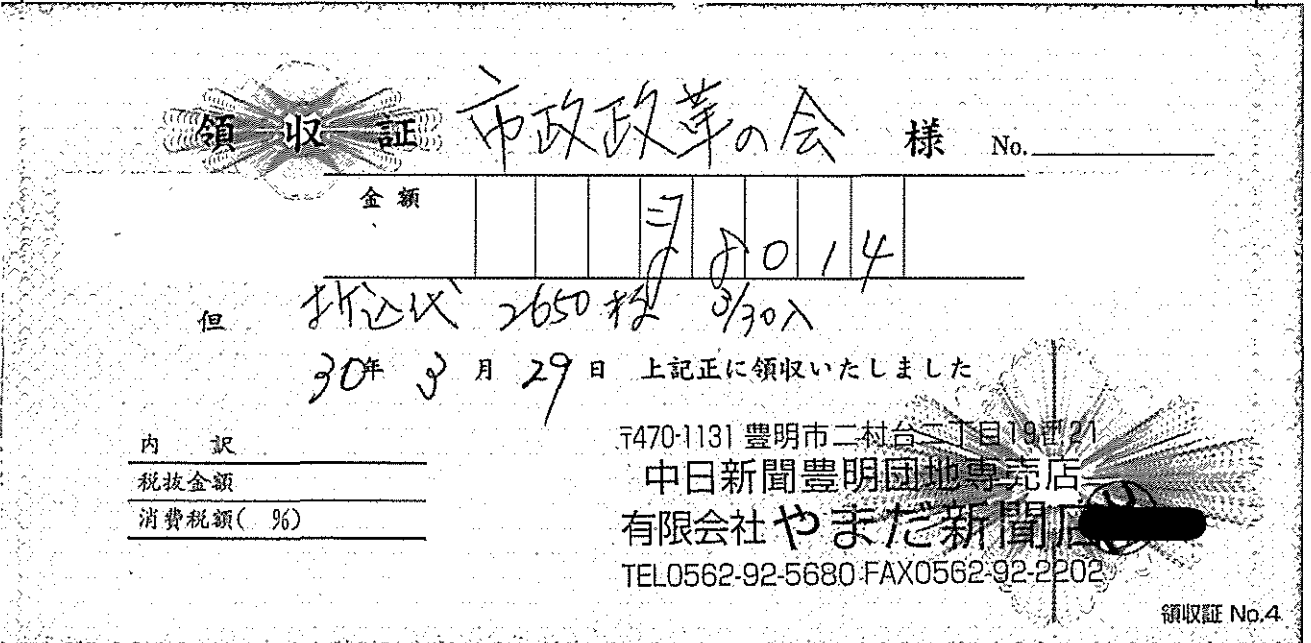 領収証 市政改革の会 様 No.
金額 ¥8014
但 折込代 2650枚 3/30入
30年 3月 29日 上記正に領収いたしました
内訳
税抜金額
消費税額( %)
〒470-1131 豊明市二村台二丁目19番21
中日新聞豊明団地専売店
有限会社やまだ新聞店
TEL0562-92-5680 FAX0562-92-2202
領収証 No.4